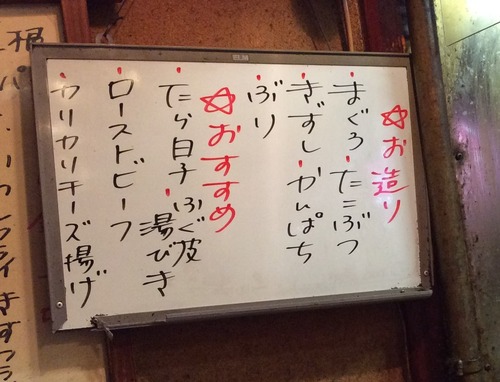 ☆お造り
・まぐろ ・たこぶつ
・きずし ・かんぱち
・ぶり
☆おすすめ
・たら白子 ・ふぐ皮湯びき
・ローストビーフ
・カリカリチーズ揚げ